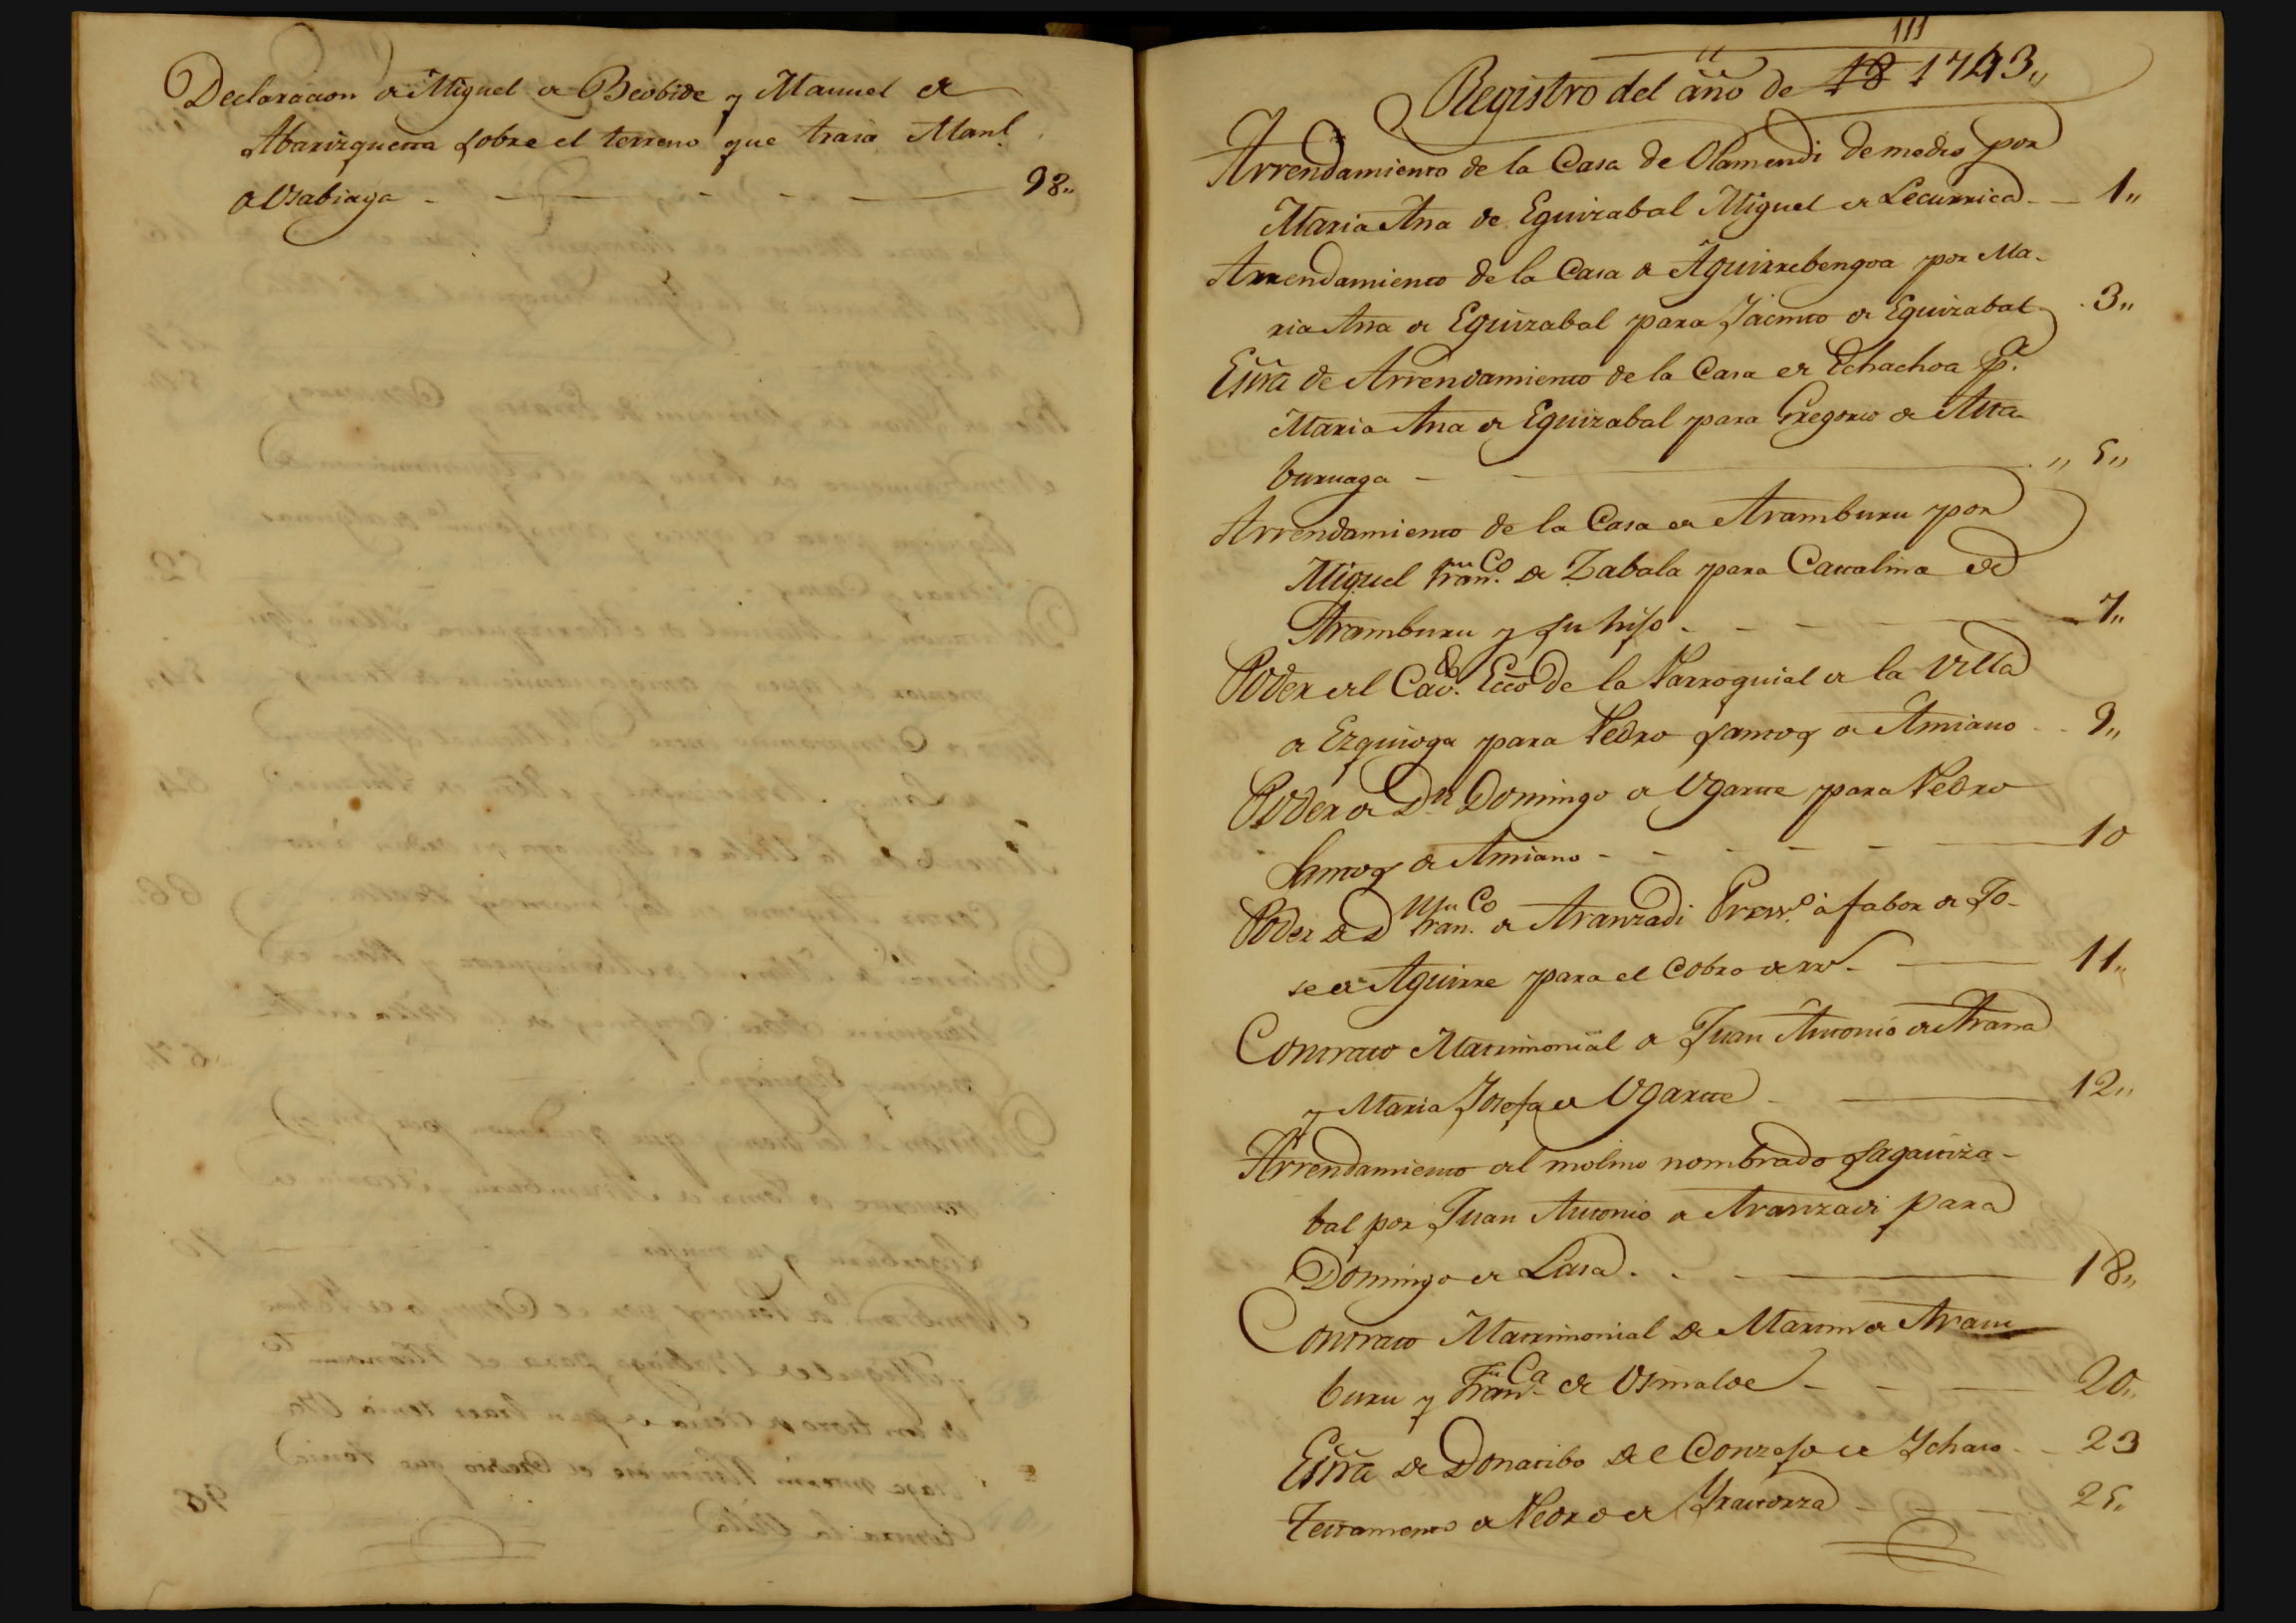 Declaracion de Miguel de Beobide y Manuel de
Abarizqueta sobre el terreno que traia Man.l
de Usabiaga - - - - - - 98,,
111
Registro del año de 18 1743,,
Arrendamiento de la Casa de Olamendi de medio por
Maria Ana de Eguizabal Miguel de Lecurrieta - 1,,
Arrendamiento de la Casa de Aguirrebengoa por Ma-
ria Ana de Eguizabal para Jacinto de Eguizabal . 3,,
Essra de Arrendamiento de la Casa de Echachoa p.r
Maria Ana de Eguizabal para Gregorio de Alta
buruaga - ,, 5,,
Arrendamiento de la Casa de Aramburu por
Miguel Fran.co de Zabala para Catalina de
Aramburu y su hijo - - - - 7,,
Poder del Cav.o Ecco de la Parroquial de la Villa
de Ezquioga para Pedro Santos de Amiano - - 9,,
Poder de Dn Domingo de Ugarte para Pedro
Santos de Amiano - - - - - 10
Poder de D Fran.co de Aranzadi Presv.o à fabor de Jo-
se de Aguirre para el Cobro de rrs - 11,,
Contrato Matrimonial de Juan Antonio de Arana
y Maria Josefa de Ugarte - 12,,
Arrendamiento del molino nombrado Sagastiza-
bal por Juan Antonio de Aranzadi para
Domingo de Lasa . . - 18,,
Contrato Matrimonial de Martin de Aram
buru y Fran.ca de Usinalde - - - 20,,
Essra de Donatibo de el Conzejo de Ichaso - - 23
Testamento de Pedro de Yrastorza - - - 25,,